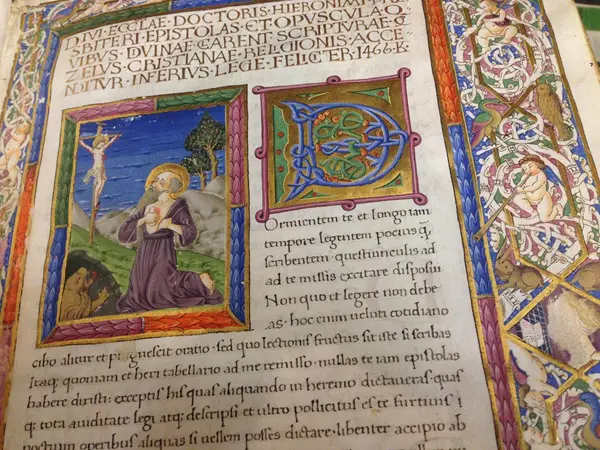 DIVI. ECCLAE. DOCTORIS. HIERONIMI. P
BITERI. EPISTOLAS. ET. OPVSCVLA
VIBVS. DVINAE. CARENT. SCRIPTVRAE. Q
ZELVS. CRISTIANAE. RELIGIONIS. ACCE
NDITVR. INFERIVS. LEGE. FELICTER. 1466. K
D
Ormientem te et longo iam
tempore legentem pocius q̃
scribentem questiunculis ad
ad te missis excitare disposui
Non quo et legere non debe
as. hoc enim ueluti cotidiano
cibo alitur et pinguescit oratio. sed quo lectionis fructus sit iste si scribas
Itaq; quoniam et heri tabellario ad me remisso. nullas te iam epistolas
habere dixisti: exceptis his quas aliquando in heremo dictaueras. quas
q; tota auiditate legi atq; descripsi et ultro pollicitus es te furtiuis
noctium operibus aliquas si uellem posses dictare. libenter accipio ab